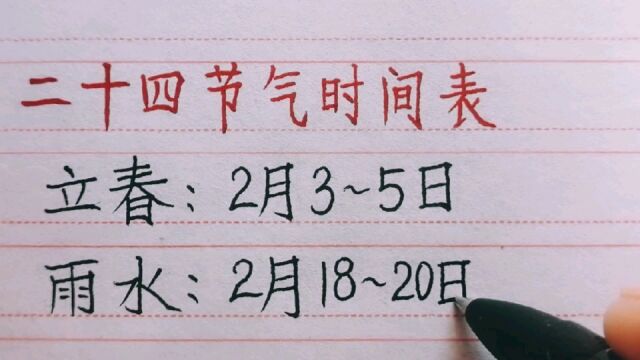 二十四节气时间表
立春：2月3~5日
雨水：2月18~20日